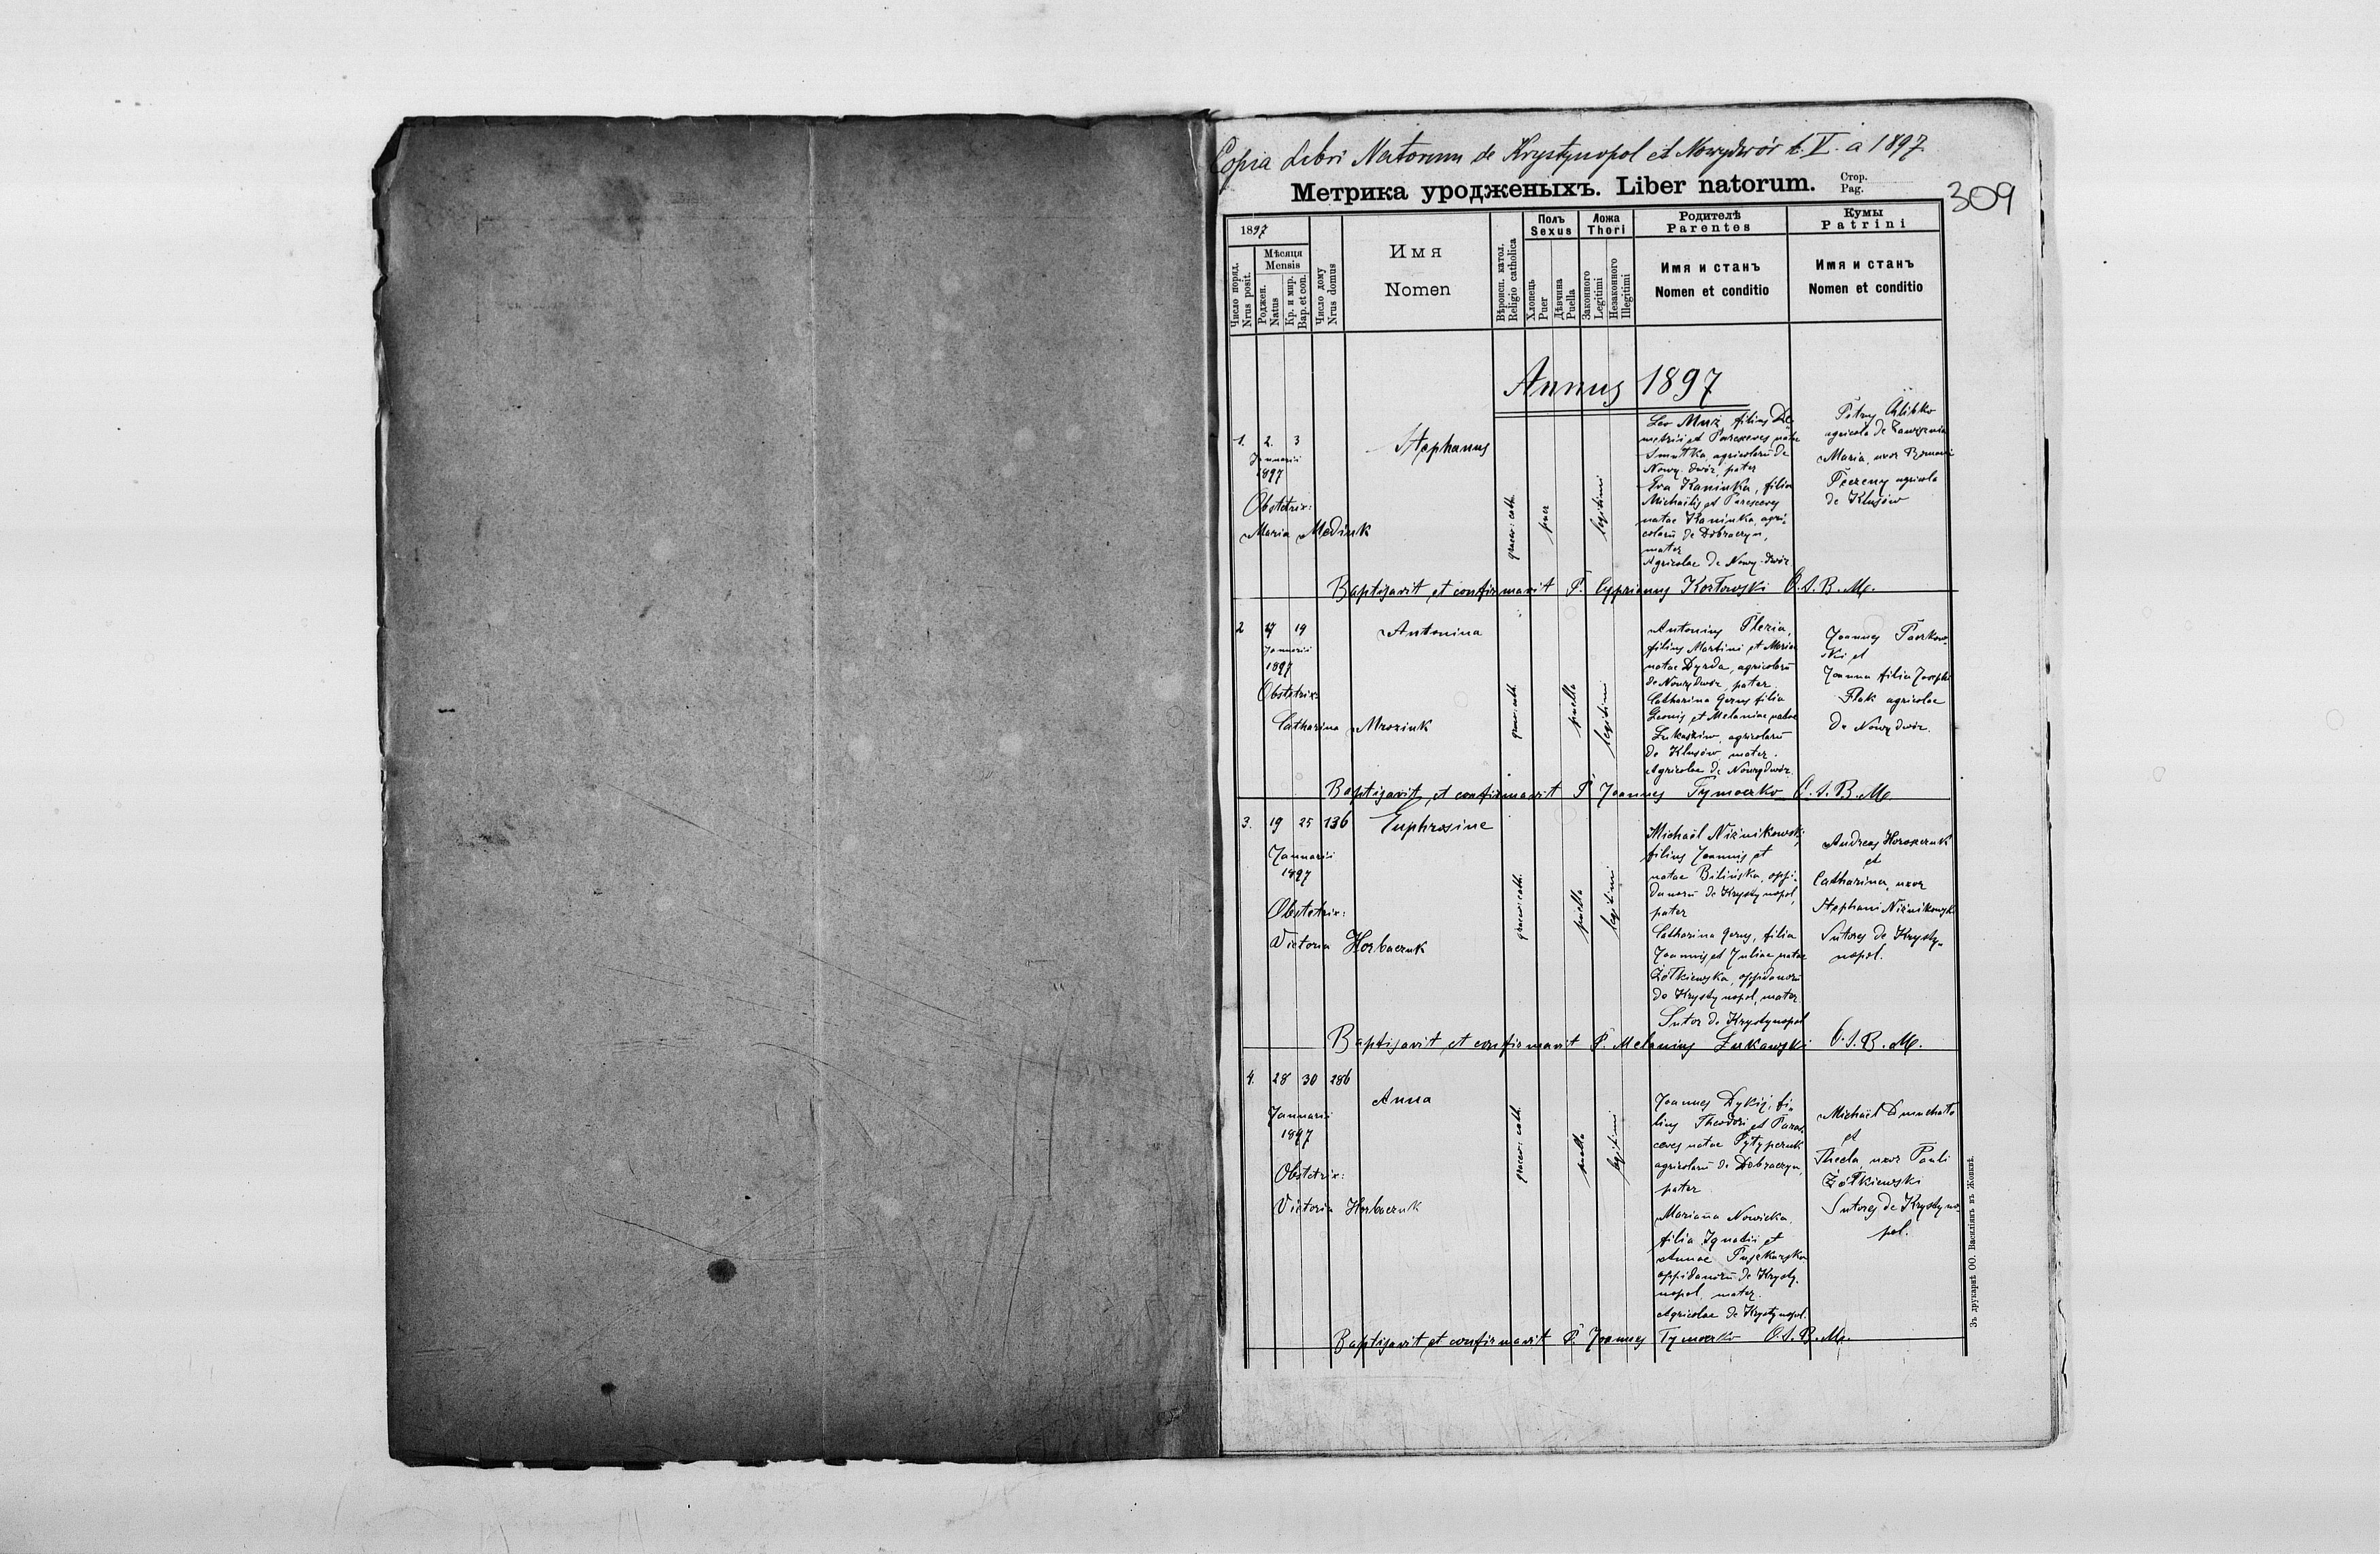 Copia Libri Natorum de Krystynopol et Nowydwór t. V. a 1897
Метрика уродженыхъ. Liber natorum.
Стор.
Pag.
309
1897
Мѣсяця
Mensis
Число поряд.
Nrus posit.
Роджен.
Natus
Кр. и мир.
Bap. et con.
Число дому
Nrus domus
Имя
Nomen
Вѣроисп. катол.
Religio catholica
Полъ
Sexus
Хлопець
Puer
Дѣвчина
Puella
Ложа
Thori
Законного
Legitimi
Незаконного
Illegitimi
Родителѣ
Parentes
Имя и станъ
Nomen et conditio
Кумы
Patrini
Имя и станъ
Nomen et conditio
Annus 1897
1. 2. 3
Januarii
1897
Obstetrix:
Maria Mediuk
Stephanus
graeco: cath.
puer
legitimi
Leo Muz, filius De-
metrii et Parasceves natae
Smutka, agricolarū de
Nowy-dwór, pater
Eva Kaninka, filia
Michaëlis et Parasceves
natae Kaninka, agri-
colarū de Dobraczyn,
mater
Agricolae de Nowy-dwór
Petrus
agricola de Zawisznia
Maria, uxor Romani
agricola
de Klusów
Baptisavit et confirmavit P. Cyprianus Kozłowski O.S.B.M.
2 17 19
Januarii
1897
Obstetrix:
Catharina Mroziuk
Antonina
graeco: cath.
puella
legitimi
Antonius Plezia,
filius Martini et Mariae
natae Dyrda, agricolarū
de Nowydwór, pater.
Catharina Gerus filia
Leonis et Melaniae natae
Łukasziw, agricolarū
de Klusów mater.
Agricolae de Nowydwór.
Joannes Paczkow-
ski et
Joanna filia Josephi
Flak agricolae
de Nowydwór.
Baptisavit et confirmavit P. Joannes Tymoczko O.S.B.M.
3. 19 25 136
Januarii
1897
Obstetrix:
Victoria Horbaczuk
Euphrosine
graeco: cath.
puella
legitimi
Michaël Niźnikowski,
filius Joannis et
natae Bilińska, oppi-
danorū de Krystynopol,
pater
Catharina Gerus, filia
Joannis et Juliae natae
Żółkiewska, oppidanorū
de Krystynopol, mater
Sutor de Krystynopol
Andreas Horoszczuk
et
Catharina, uxor
Stephani Niźnikowski
Sutores de Krysty-
nopol.
Baptisavit et confirmavit P. Melanius Łukawski O.S.B.M.
4. 28 30 286
Januarii
1897
Obstetrix:
Victoria Horbaczuk
Anna
graeco: cath.
puella
legitimi
Joannes Dykij, fi-
lius Theodori et Paras-
ceves natae Pytypczuk
agricolarū de Dobraczyn,
pater
Marianna Nowicka,
filia Ignatii et
Annae Puszkarska
oppidanorū de Krysty-
nopol, mater.
Agricolae de Krystynopol.
Michaël
et
Thecla, uxor Pauli
Żółkiewski
Sutores de Krystyno-
pol.
Baptisavit et confirmavit P. Joannes Tymoczko O.S.B.M.
Зъ друкарнѣ ОО. Василіянъ въ Жовквѣ.